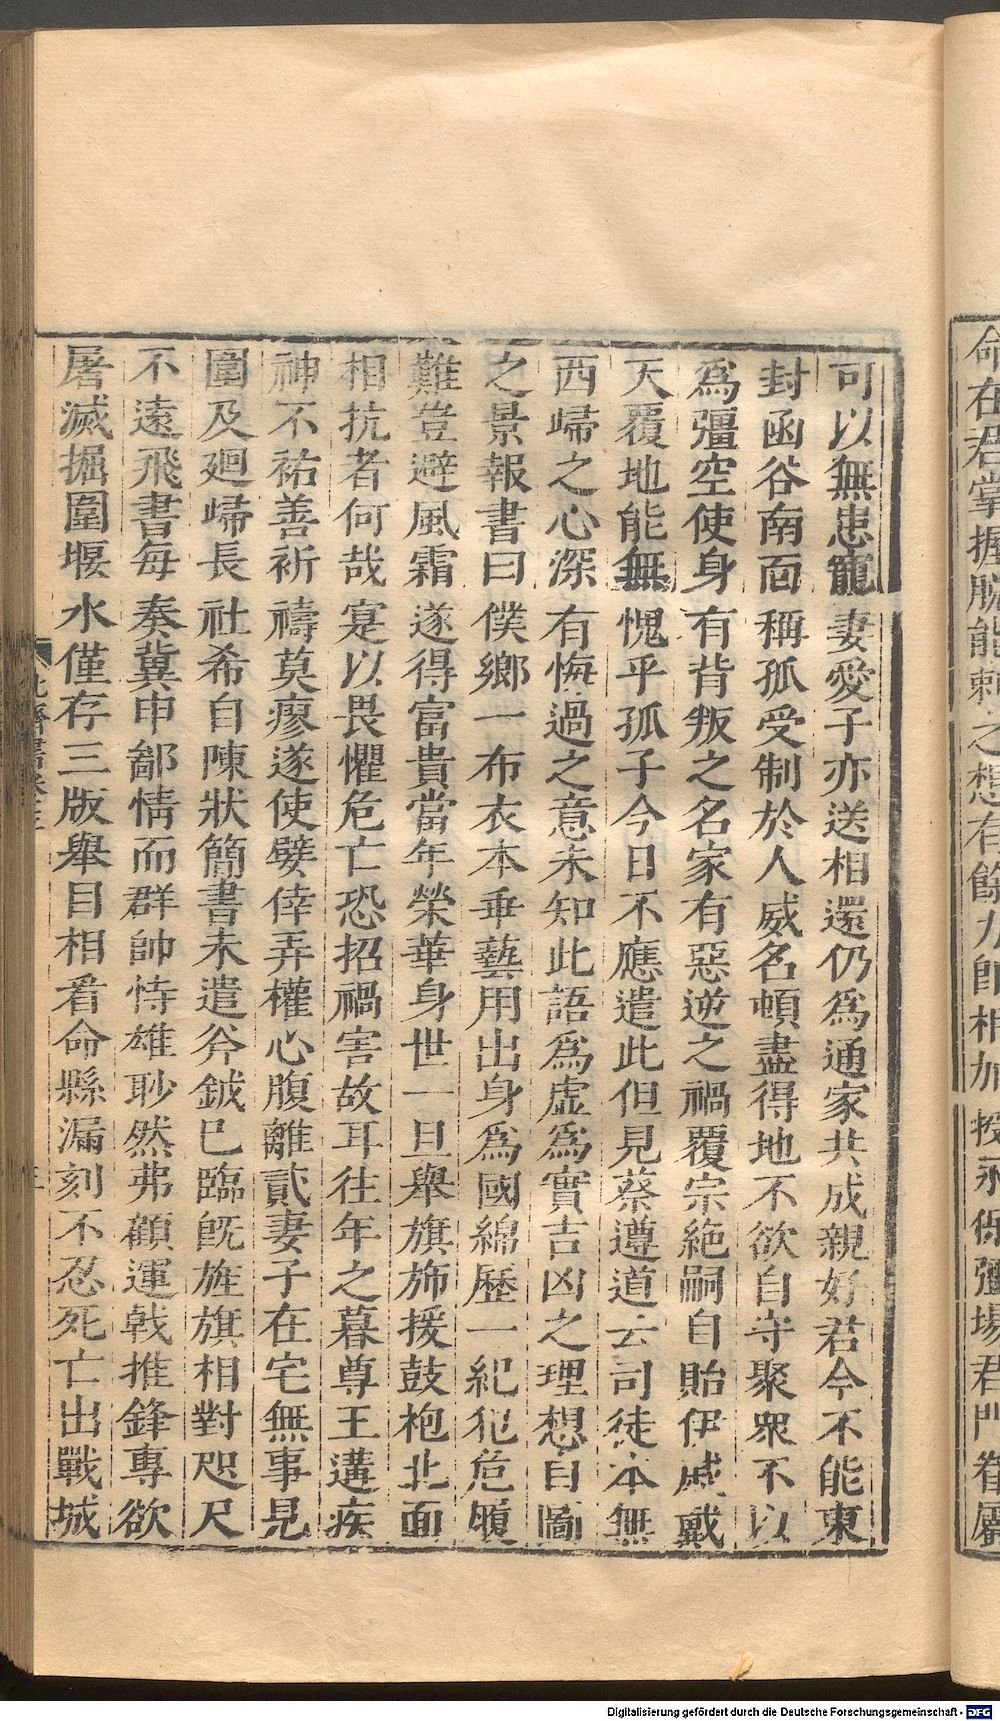 命在君掌握脫能刺之想有餘力即相加授永保疆埸君門眷屬
可以無患寵妻愛子亦送相還仍爲通家共成親好君今不能東
封函谷南面稱孤受制於人威名頓盡得地不欲自守聚衆不以
爲彊空使身有背叛之名家有惡逆之禍覆宗絶嗣自貽伊戚戴
天覆地能無愧乎孤子今日不應遣此但見蔡遵道云司徒本無
西歸之心深有悔過之意未知此語爲虚爲實吉凶之理想自圖
之景報書曰僕鄉一布衣本乖藝用出身爲國綿歷一紀犯危履
難豈避風霜遂得富貴當年榮華身世一旦舉旗斾援鼓枹北面
相抗者何哉寔以畏懼危亡恐招禍害故耳往年之暮尊王遘疾
神不祐善祈禱莫瘳遂使嬖倖弄權心腹離貳妻子在宅無事見
圍及廻歸長社希自陳狀簡書未遣斧鉞巳臨旣旌旗相對咫尺
不遠飛書每奏兾申鄙情而群帥恃雄耹然弗顧運㦸推鋒專欲
屠滅掘圍堰水僅存三版舉目相看命縣漏刻不忍死亡出戰城
北齊書卷三
Digitalisierung gefördert durch die Deutsche Forschungsgemeinschaft - DFG